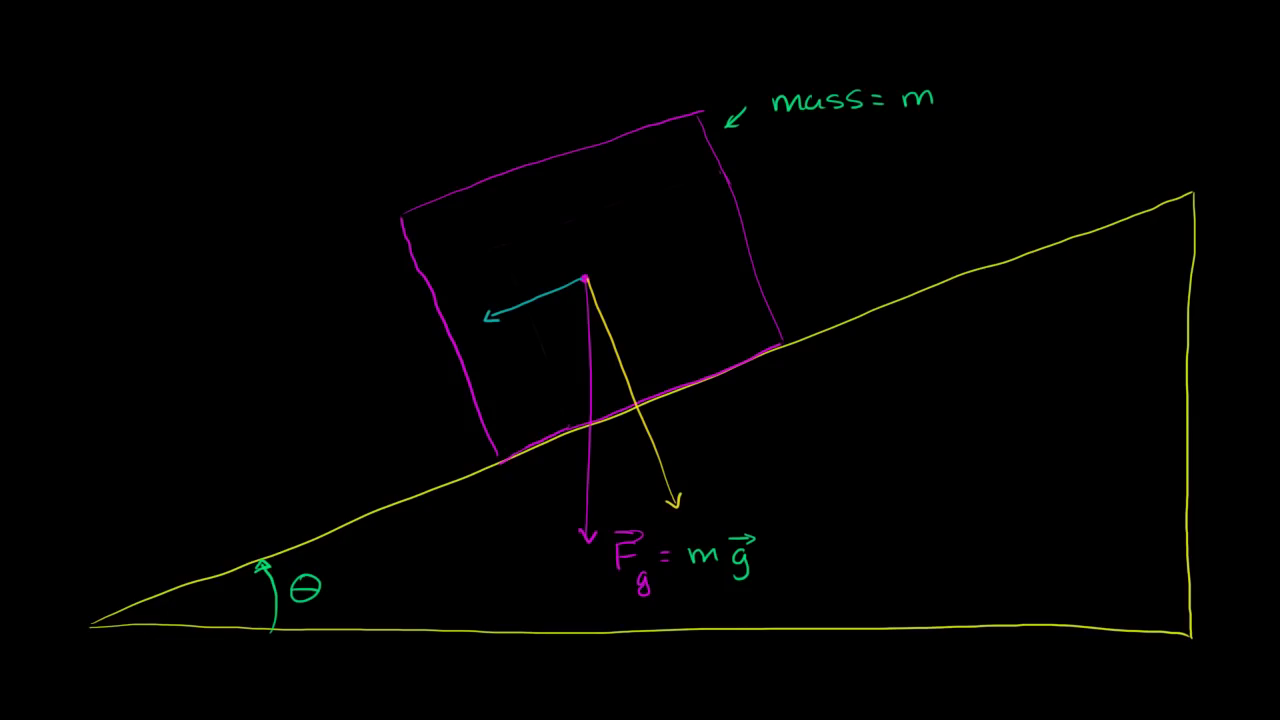 mass = m
F⃗g = m g⃗
θ